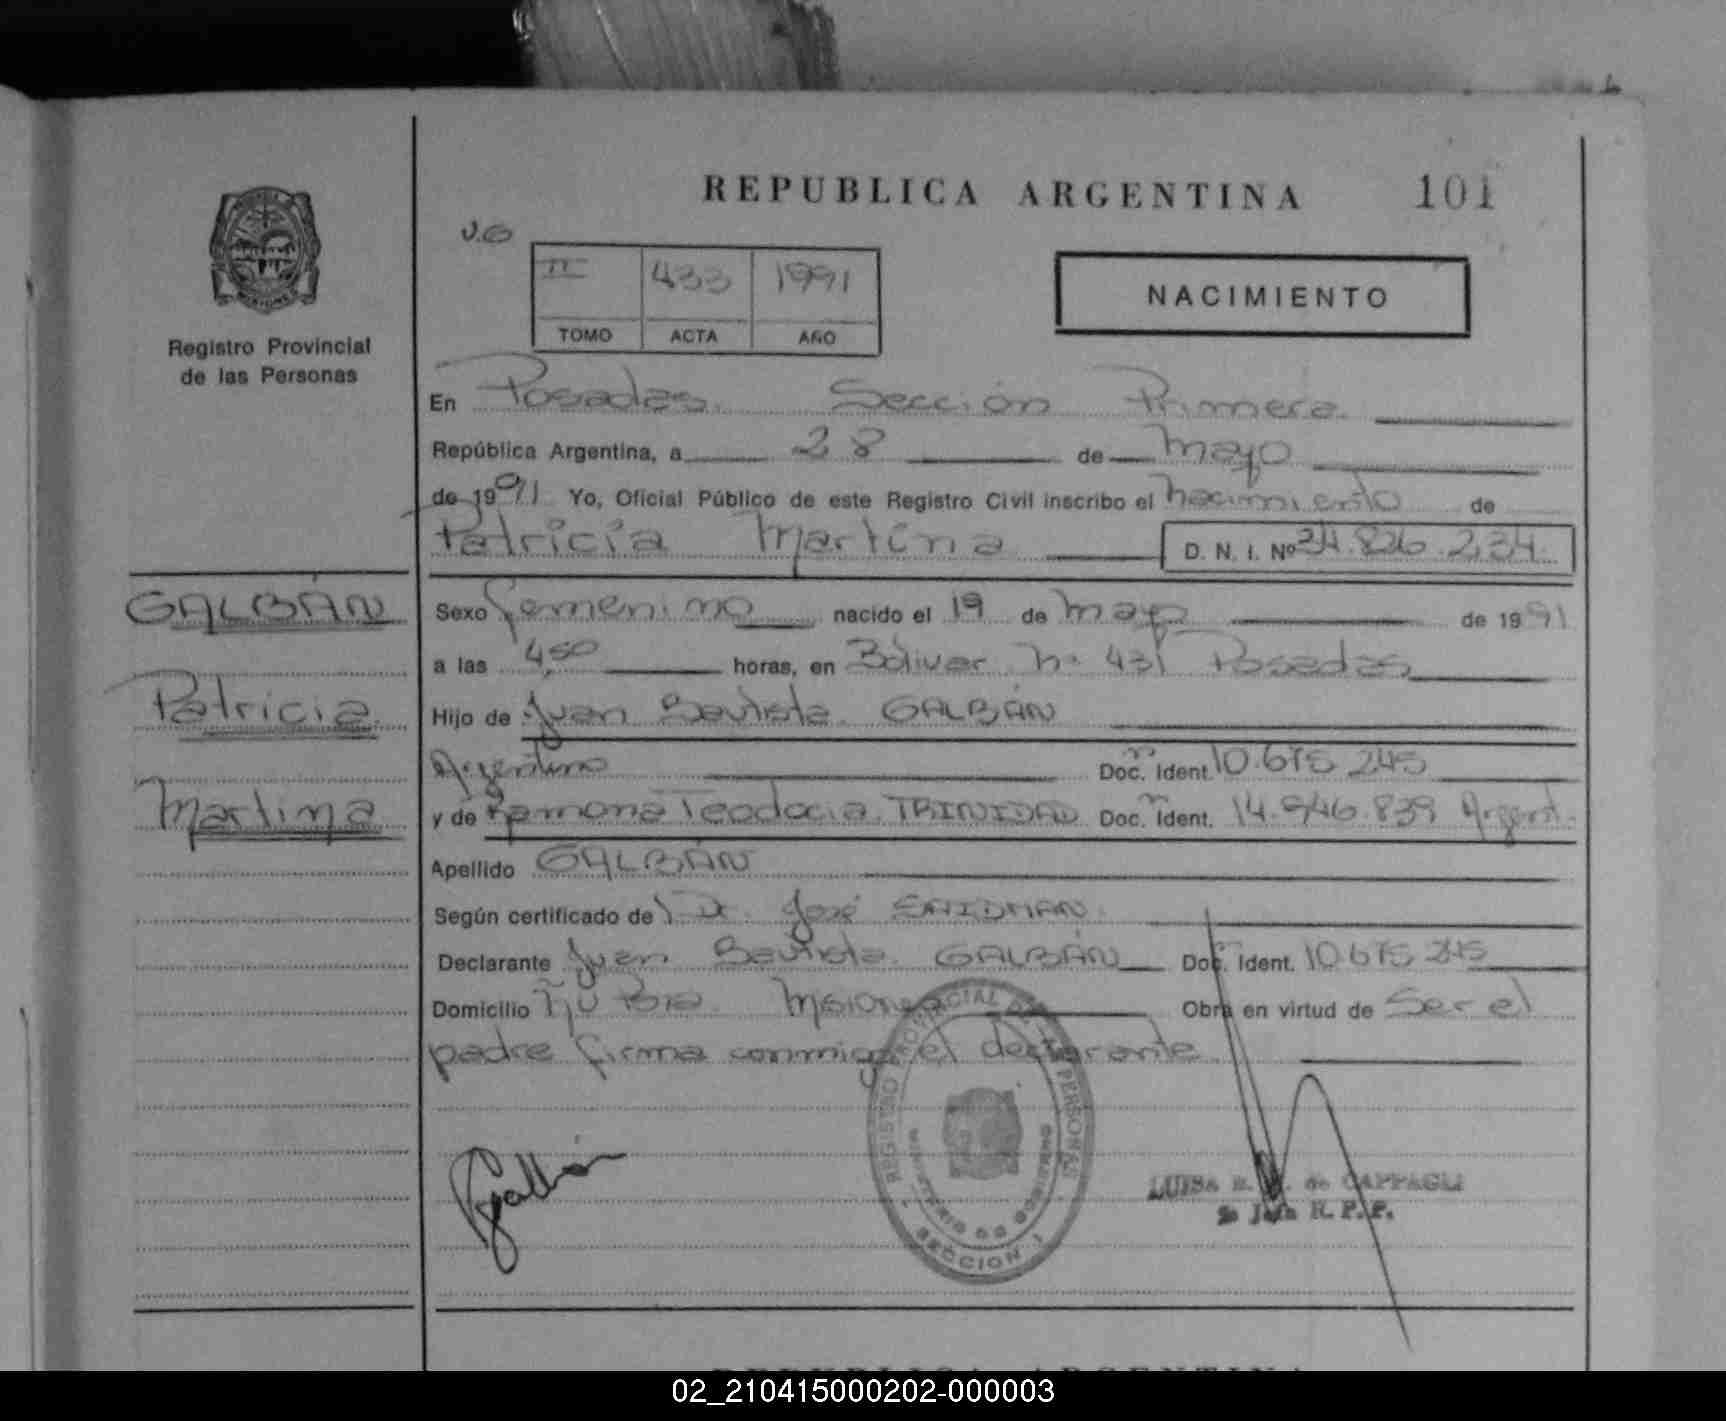 REPUBLICA ARGENTINA 101
V.G
II 433 1991
TOMO ACTA AÑO
NACIMIENTO
Registro Provincial
de las Personas
En Posadas. Sección Primera
República Argentina, a 28 de Mayo
de 1991 Yo, Oficial Público de este Registro Civil inscribo el Nacimiento de
Patricia Martina D. N. I. Nº 34.826.234.
GALBÁN
Patricia
Martina
Sexo femenino nacido el 19 de Mayo de 1991
a las 4,50 horas, en Bolivar Nº 431 Posadas
Hijo de Juan Bautista GALBÁN
Argentino Doc. Ident. 10.675.245
y de Ramona Teodocia TRINIDAD Doc. Ident. 14.946.839 Argent.
Apellido GALBÁN
Según certificado del Dr. José
Declarante Juan Bautista GALBÁN Doc. Ident. 10.675.245
Domicilio Misiones Obra en virtud de Ser el
padre firma conmigo el declarante
Galbán
REGISTRO PROVINCIAL DE LAS PERSONAS
MINISTERIO DE GOBIERNO
SECCION 1
LUISA de CAPPAGLI
R. P. P.
REPUBLICA ARGENTINA
02_210415000202-000003